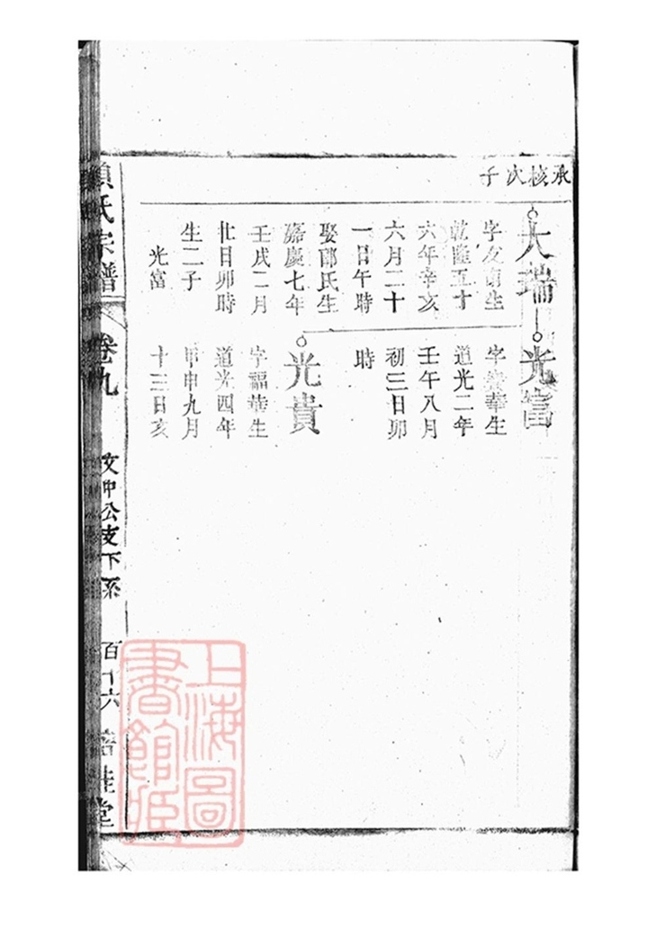 承核次子
大瑞
字友南生
乾隆五十
六年辛亥
六月二十
一日午時
娶邵氏生
嘉慶七年
壬戌二月
廿日卯時
生二子
光富
光富
字 華生
道光二年
壬午八月
初三日卯
時
光貴
字福華生
道光四年
甲申九月
十三日亥
氏宗譜
卷九
文中公支下系
百十六
桂堂
上海圖
書館藏